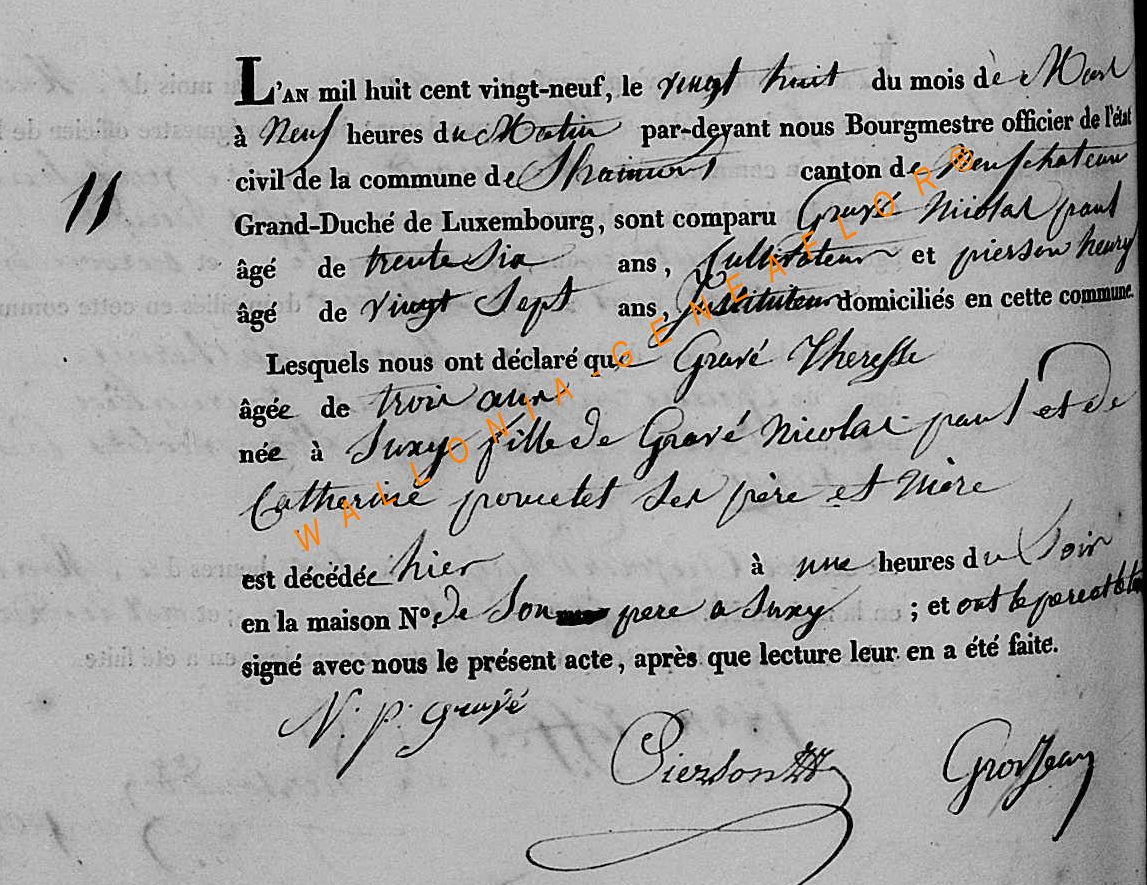 L'AN mil huit cent vingt-neuf, le vingt huit du mois de Mars
à Neuf heures du Matin par-devant nous Bourgmestre officier de l'état
civil de la commune de Straimont canton de Neufchateau
11
Grand-Duché de Luxembourg, sont comparu Gravé Nicolas paul
âgé de trente Six ans, Cultivateur et pierson henry
âgé de vingt Sept ans, Instituteur domiciliés en cette commune.
Lesquels nous ont déclaré que Gravé Theresse
âgée de trois ans
née à Suxy fille de Gravé Nicolas paul et de
Catherine poncelet Ses père et Mère
est décédée hier à une heures du Soir
en la maison N° de Son pere a Suxy ; et ont le pere et
signé avec nous le présent acte, après que lecture leur en a été faite.
N. p. gravé
Pierson
GrosJean
WALLONIA-GENEAELOR®